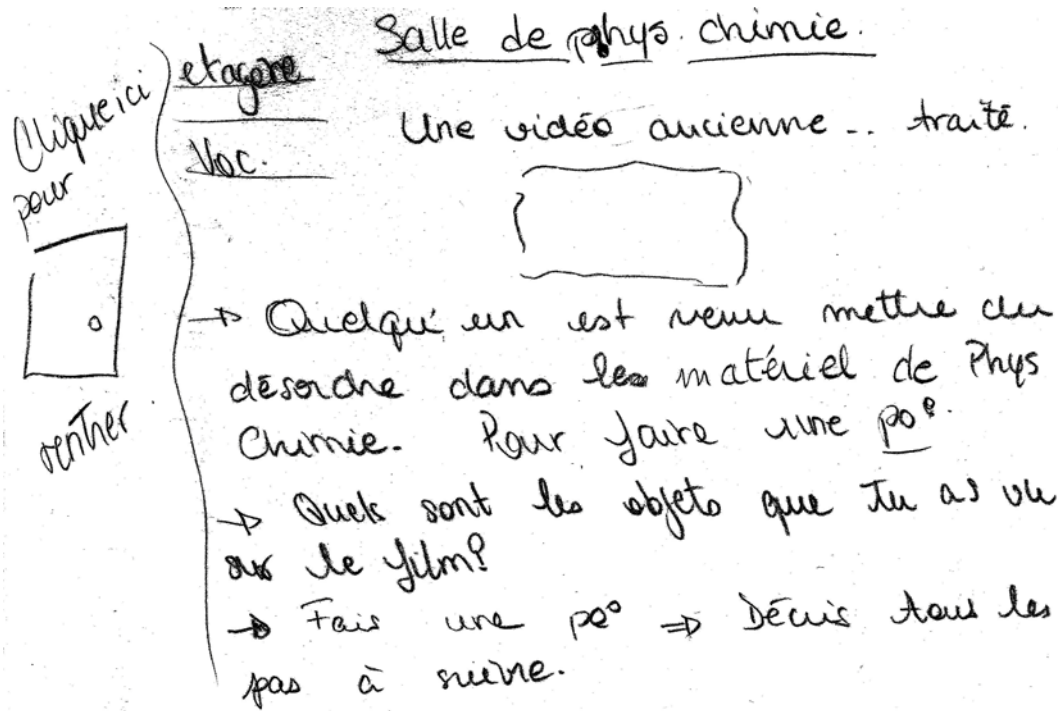 Salle de phys. chimie.
Clique ici
pour
rentrer.
etagère
Voc.
Une vidéo ancienne .. traité.
→ Quelqu'un est venu mettre du
désordre dans les matériel de Phys
Chimie. Pour faire une po°.
→ Quels sont les objets que tu as vu
sur le film?
→ Fais une po° ⇒ Décris tous les
pas à suivre.